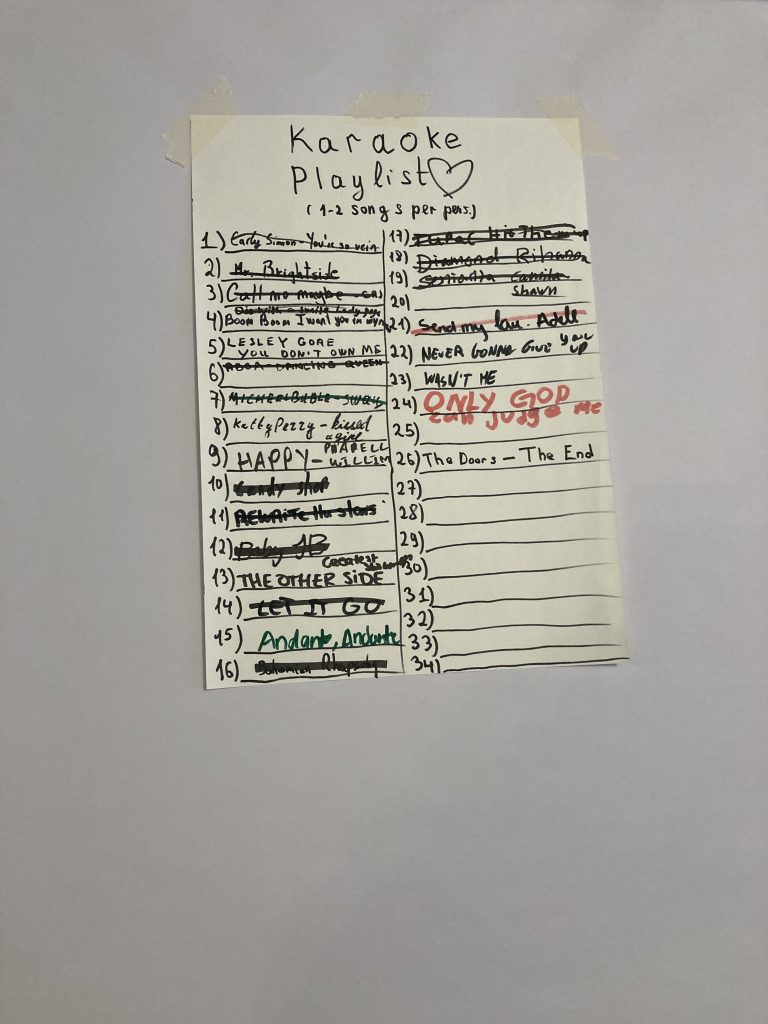 Karaoke
Playlist
(1-2 songs per pers.)
1) Carly Simon - You're so vein
2) Mr. Brightside
3) Call me maybe -
Die with a smile Lady
4) Boom Boom I want you in my
5) LESLEY GORE
YOU DON'T OWN ME
6) ABBA - DANCING QUEEN
7) MICHEAL BUBLE - SWAY
8) Katty Perry - kissed
a girl
9) HAPPY - PHARELL
WILLIM
10) Candy shop
11) REWRITE the stars
12) Baby JB
Greatest
13) THE OTHER SIDE
14) LET IT GO
15) Andante, Andante
16) Bohemian Rhapsody
17) Them up
18) Diamond Rihanna
19) Camila
SHAWN
20)
21) Send my Adell
22) NEVER GONNA GIVE YOU
UP
23) WASN'T ME
24) ONLY GOD
can judge me
25)
26) The Doors - The End
27)
28)
29)
30)
31)
32)
33)
34)